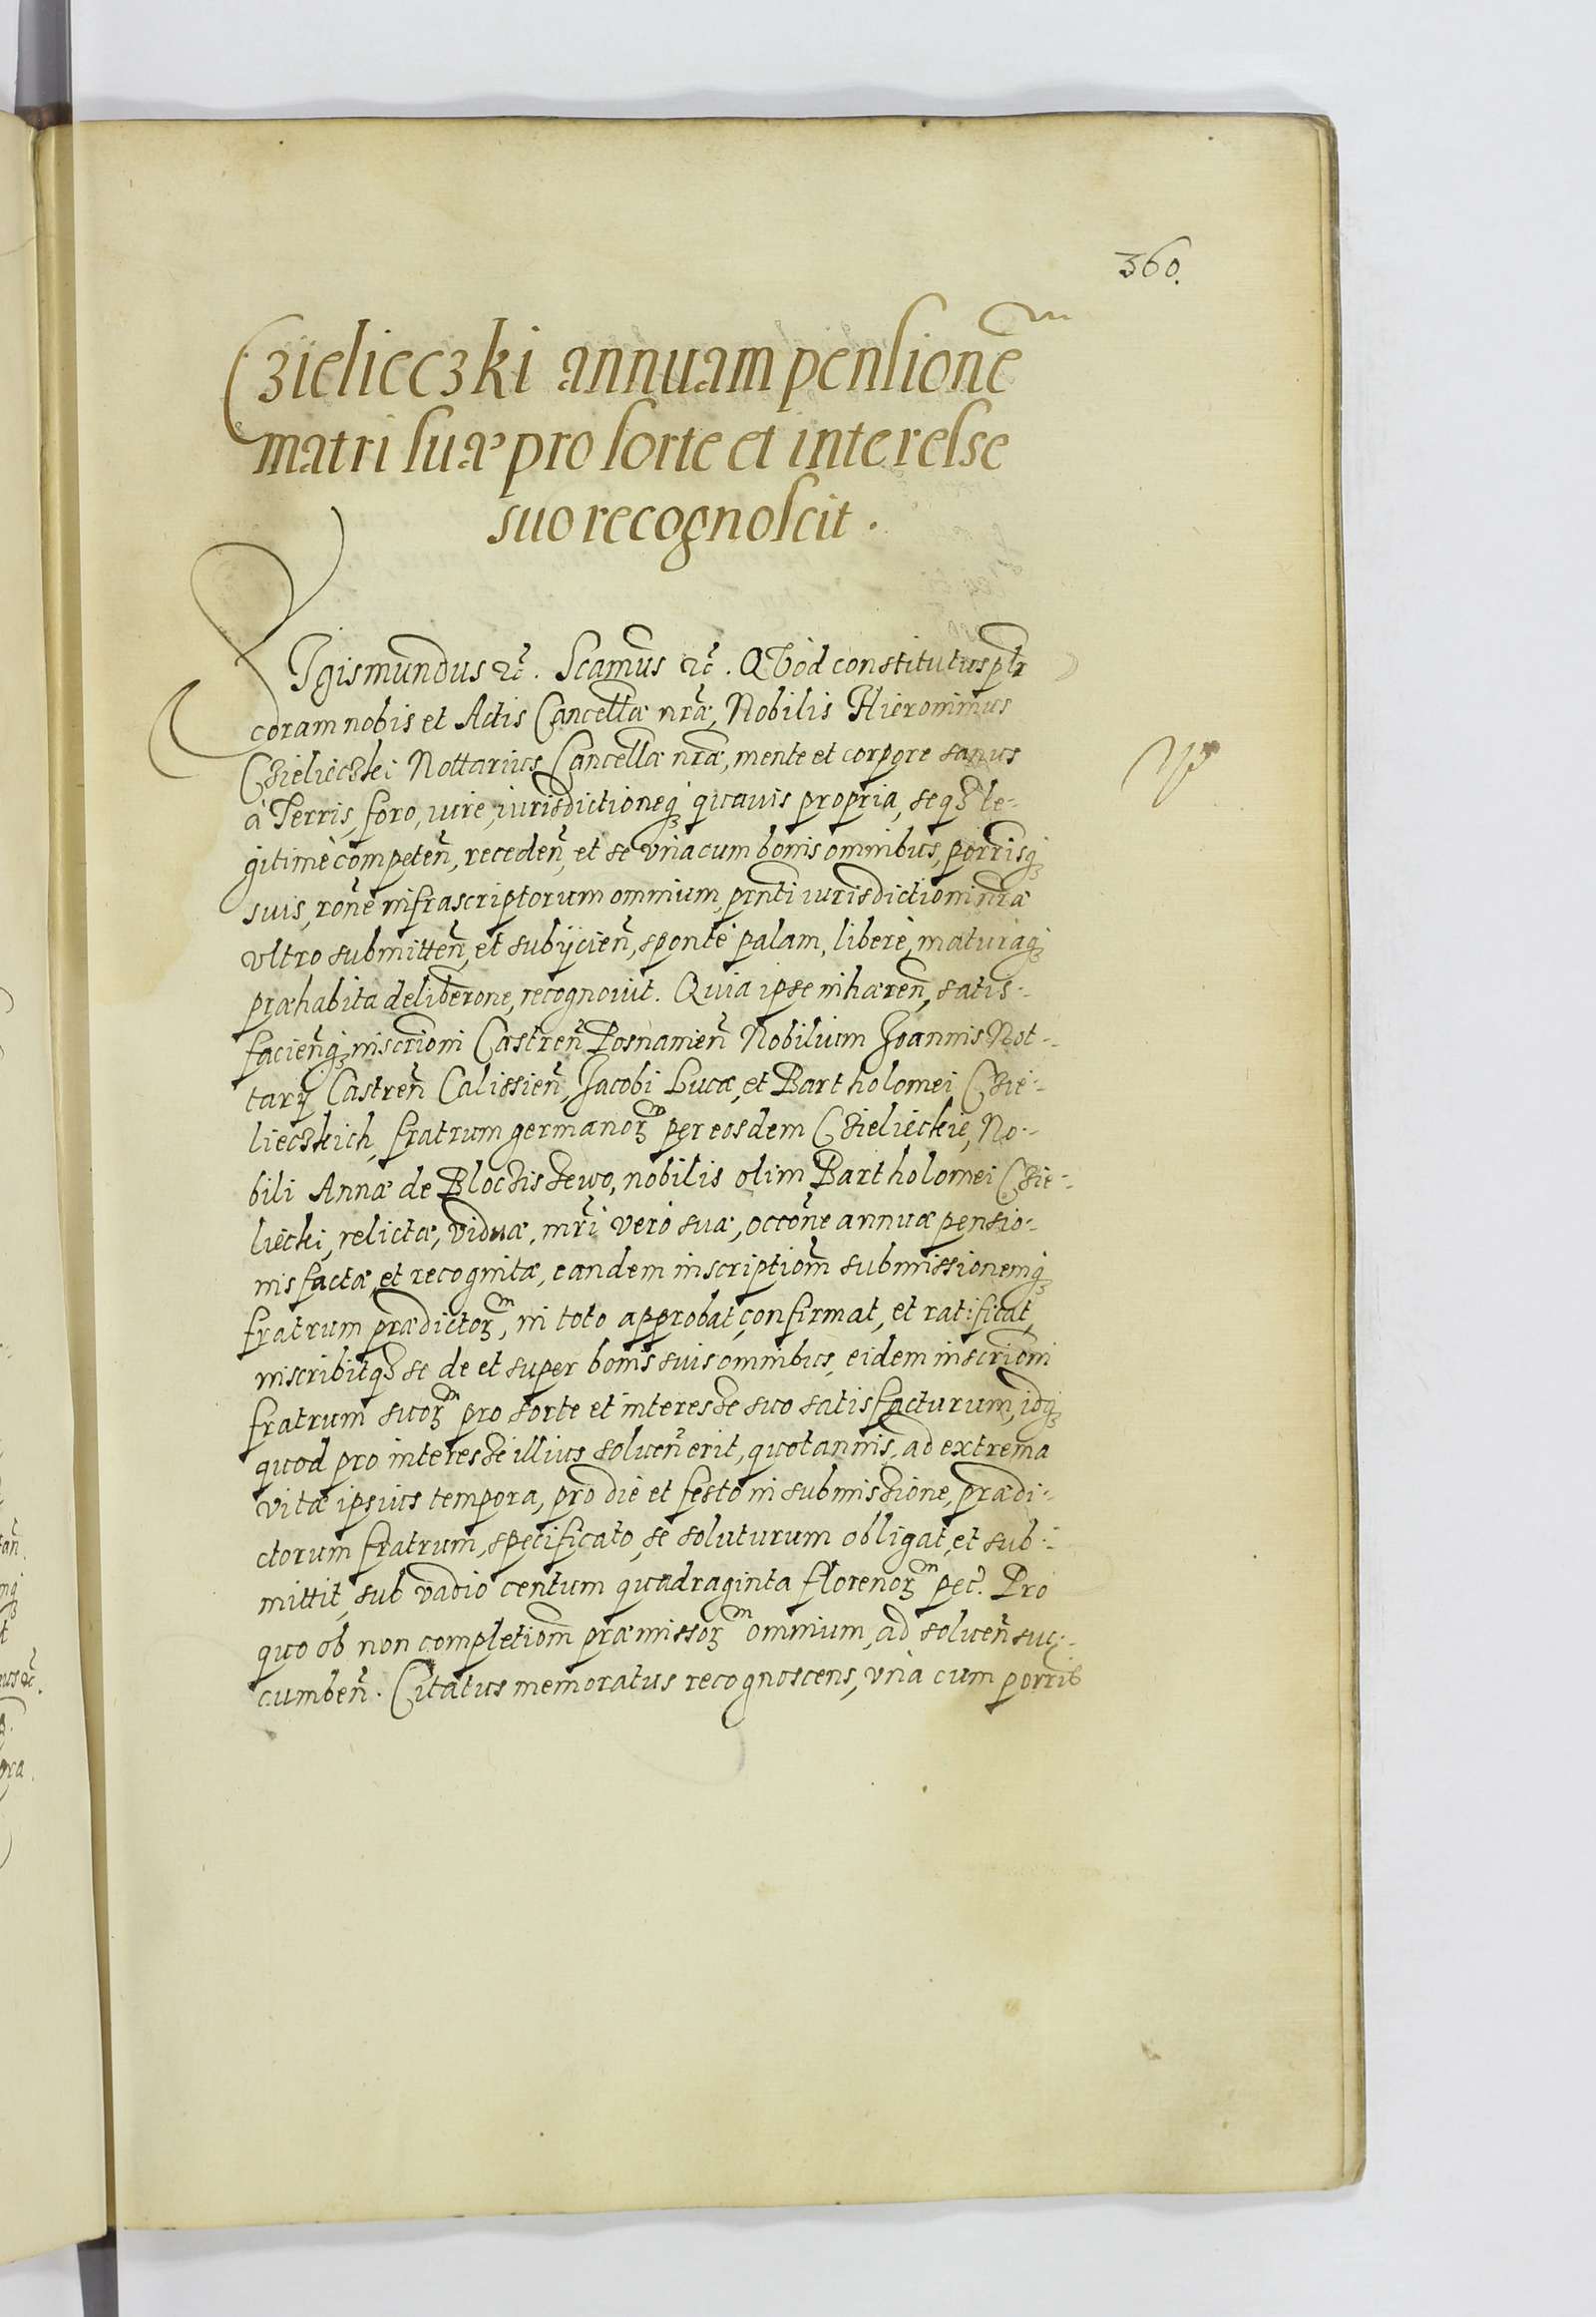 360.
Czielieczki annuam pensionē
matri suæ pro sorte et interesse
suo recognoscit.
Sigismundus ⁊c̃. Scimus ⁊c̃. QVod constitutus pltr
coram nobis et Actis Cancellæ nr̃æ, Nobilis Hieronimus
Czielieczki Nottarius Cancellæ nr̃æ, mente et corpore sanus
à Terris, foro, iure, iurisdictioneq́ꝫ quauis propria, seqꝫ le-
gitimè competeñ, recedeñ, et se vna cum bonis omnibus, porrisq́ꝫ
suis, rõne infrascriptorum omnium, pr̃nti iurisdictioni nr̃æ
vltro submitteñ, et subijcieñ, spontè palam, liberè, maturaq́ꝫ
præhabita deliberone, recognovit. Quia ipse inhæreñ, satis-
facieñq́ꝫ inscrioni Castreñ Posnanieñ Nobilium Joannis Not-
tarij Castreñ Calissieñ, Jacobi Lucæ, et Bartholomei Czie-
lieczkich, fratrum germanoꝝ per eosdem Czielieckie, No-
bili Annæ de Blocziszewo, nobilis olim Bartholomei Czie-
liecki, relictæ, viduæ, mr̃i verò suæ, occõne annuæ pensio-
nis factæ, et recognitæ, eandem inscriptiom̃ submissionemq́ꝫ
fratrum prædictoꝝ, in toto approbat, confirmat, et ratificat,
inscribitqꝫ se de et super bonis suis omnibus, eidem inscrioni
fratrum suoꝝ pro sorte et interesse suo satisfacturum, idq́ꝫ
quod pro interesse illius solueñ erit, quotannis, ad extrema
vitæ ipsius tempora, pro die et festo in submissione, prædi-
ctorum fratrum, specificato, se soluturum obligat, et sub-
mittit, sub vadio centum quadraginta florenoꝝ pec̃. Pro
quo ob non completiom̃ præmissoꝝ omnium, ad solueñ suc-
cumbeñ. Citatus memoratus recognoscens, vna cum porrib